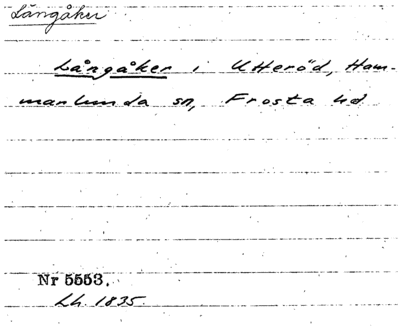 Långåker
Långåker i Utteröd, Ham-
marlunda sn, Frosta hd
Nr 5553.
Lh. 1835.